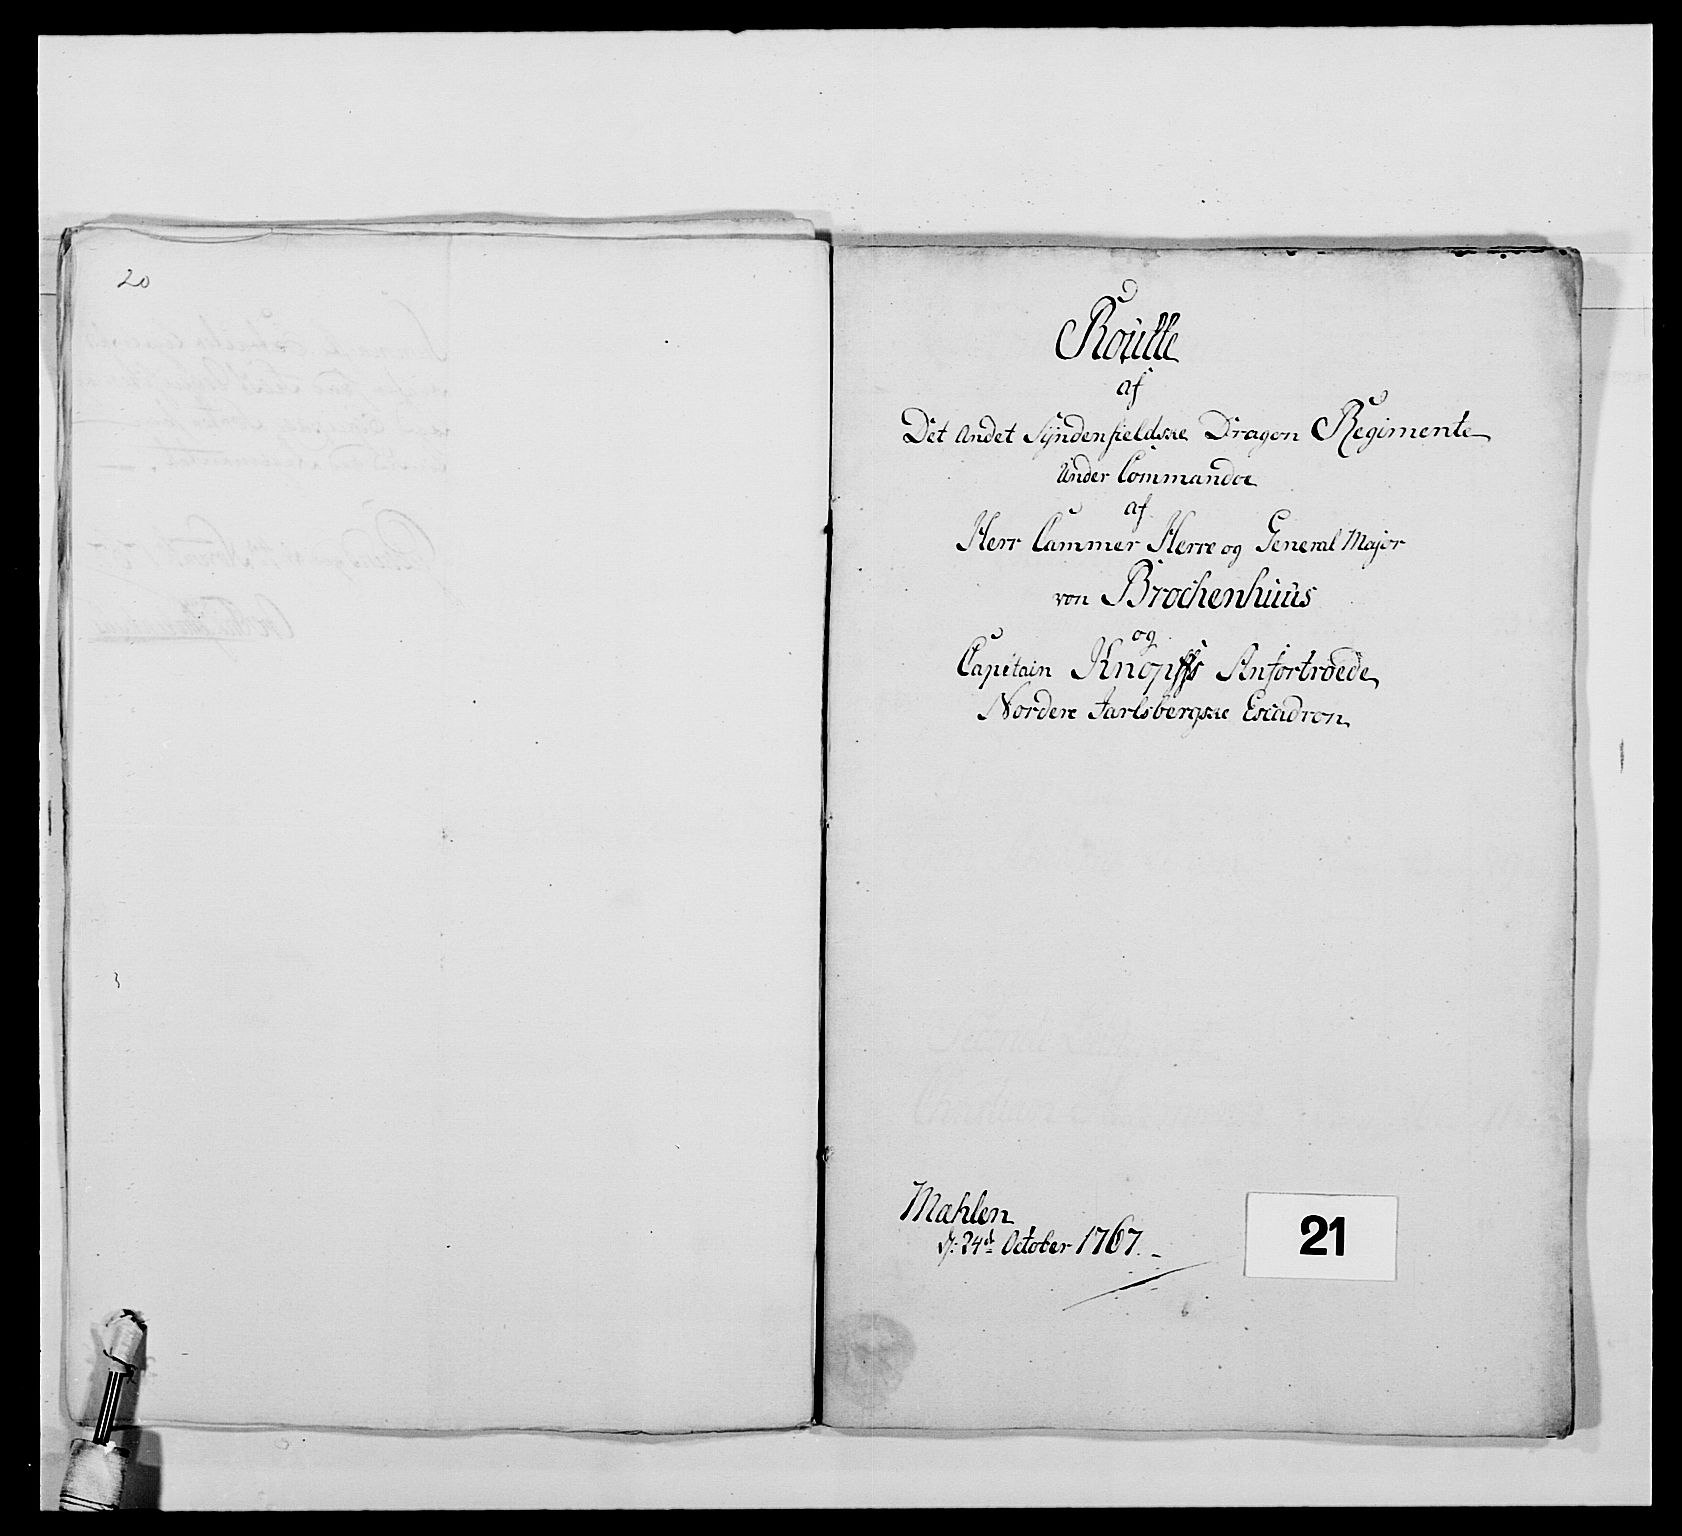 20
Roulle
af
Det Andet Syndenfieldske Dragon Regimente
Under Commandoe
af
Herr Cammer Herre og General Major
von Brochenhuus
og
Capitain Knopffs Anfortroede
Nordere Jarlsbergske Escadron
Mahlen
d: 24d October 1767.
21